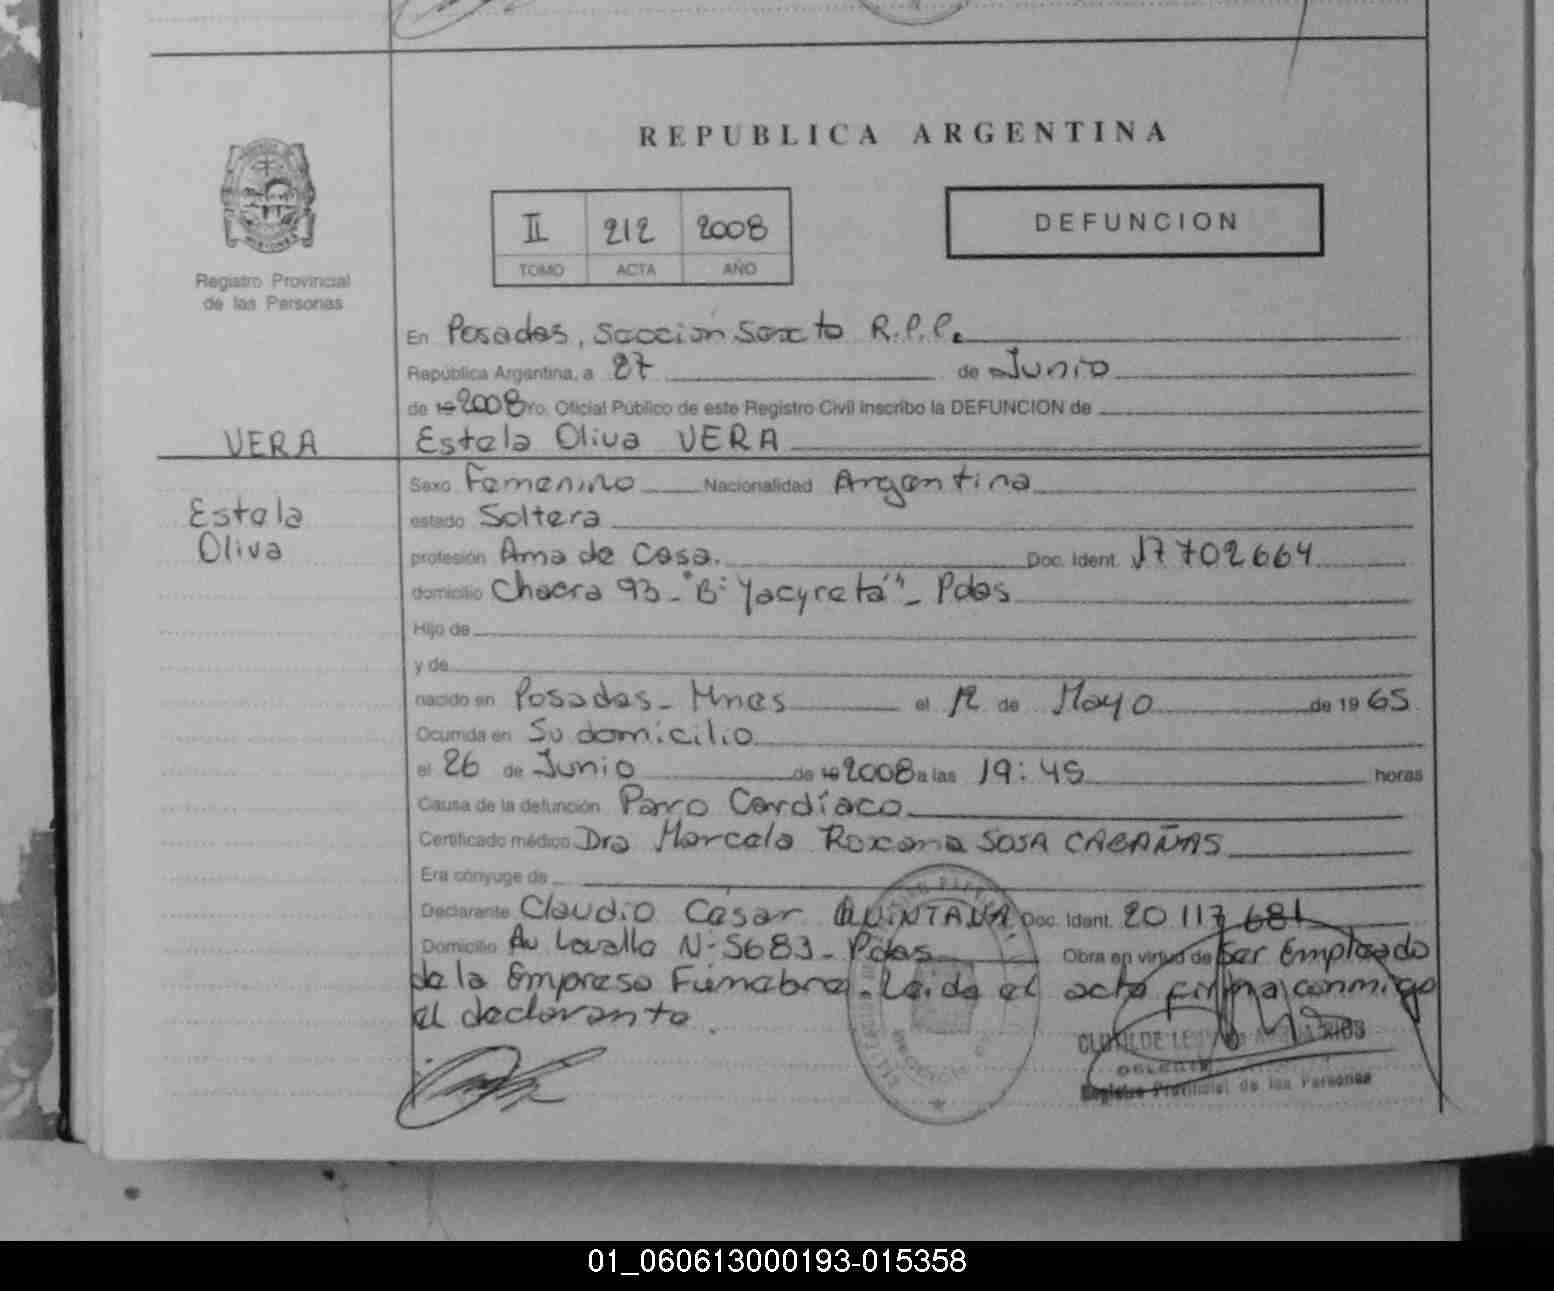 REPUBLICA ARGENTINA
Registro Provincial
de las Personas
II 212 2008
TOMO ACTA AÑO
DEFUNCION
En Posadas, Sección Sexto R.P.P.
República Argentina, a 27 de Junio
de 19 2008 Yo, Oficial Público de este Registro Civil inscribo la DEFUNCION de
VERA
Estela Oliva VERA
Estela
Oliva
Sexo Femenino Nacionalidad Argentina
estado Soltera
profesión Ama de Casa. Doc. Ident. 17702664
domicilio Chacra 93 - "B: Yacyretá" - Pdas
Hijo de
y de
nacido en Posadas - Mnes el 12 de Mayo de 1965
Ocurrida en Su domicilio
el 26 de Junio de 19 2008 a las 19:45 horas
Causa de la defunción Paro Cardíaco
Certificado médico Dra Marcela Roxana SOSA CABAÑAS
Era cónyuge de
Declarante Claudio Cesar QUINTANA Doc. Ident. 20 117 681
Domicilio Av Lavalle N: 5683 - Pdas Obra en virtud de Ser Empleado
de la Empresa Fúnebre. Leida el acta firma conmigo
el declarante.
Registro Provincial de las Personas
01_060613000193-015358